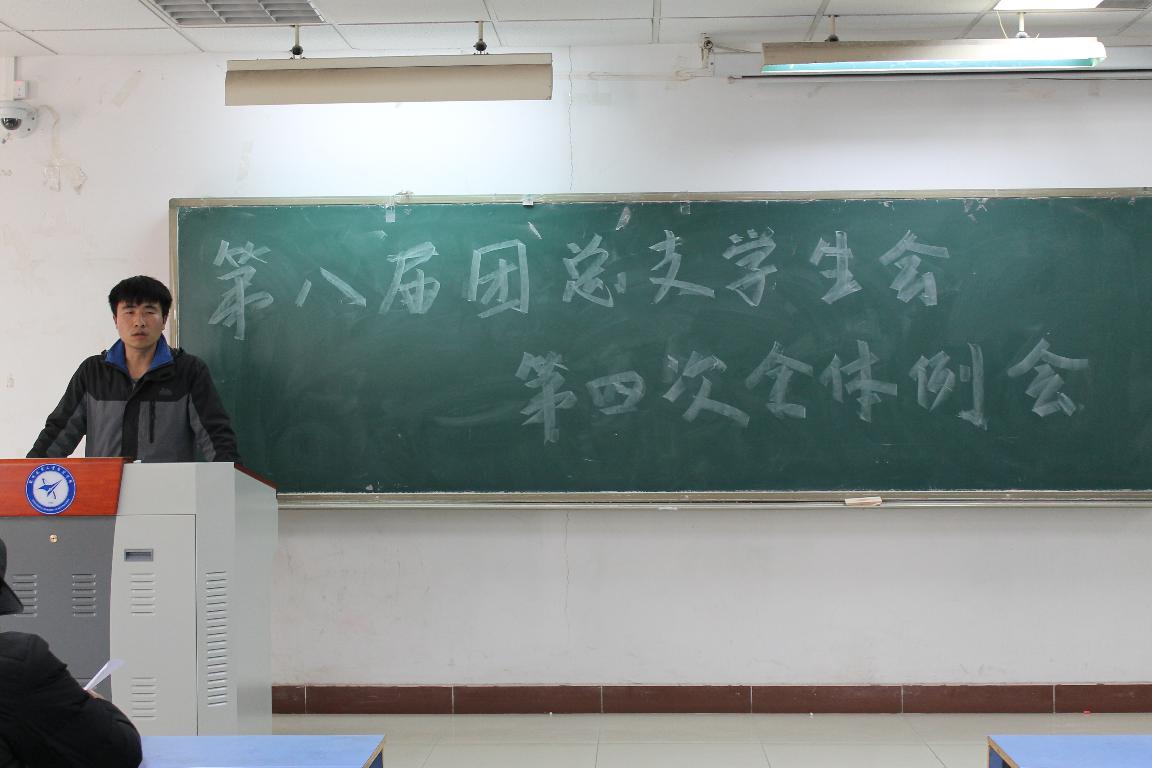 第八届团总支学生会
第四次全体例会